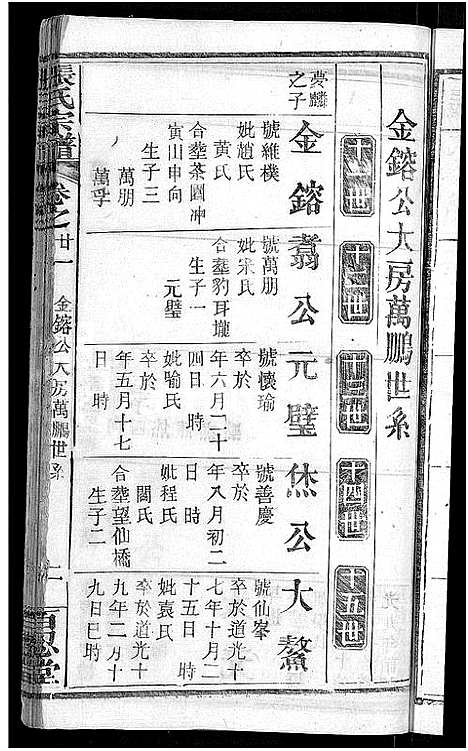 金鎔公大房萬鵬世系
十一世
十二世
十三世
十四世
十五世
夢麟
之子
金鎔
號維樸
妣趙氏
黃氏
合塟茶園冲
寅山申向
生子三
萬朋
萬孚
翥公
號萬朋
妣宋氏
合塟豹耳壠
生子一
元璧
元璧
號懷瑜
卒於
年六月二十
四日 時
妣喻氏
卒於
年五月十七
日 時
烋公
號善慶
卒於
年八月初二
日 時
妣程氏
閻氏
合塟望仙橋
生子二
大鰲
號仙峯
卒於道光十
七年十月二
十五日 時
妣袁氏
卒於道光十
九年二月十
九日巳時
張氏宗譜
卷之廿一
金鎔公大房萬鵬世系
百忍堂